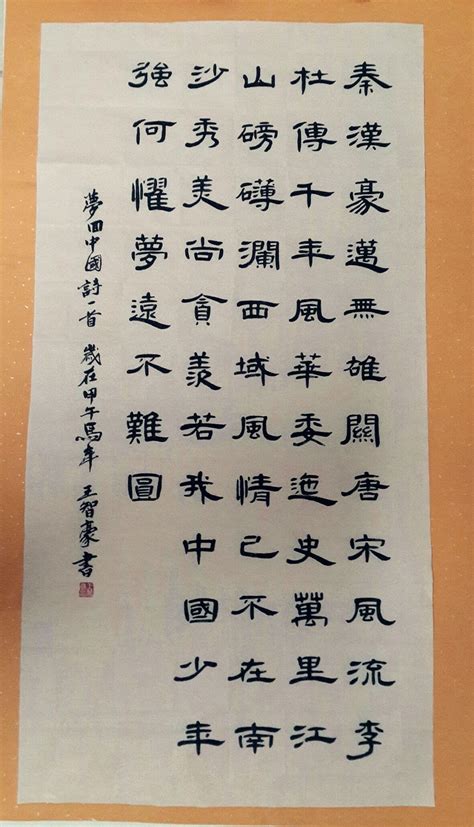 秦漢豪邁無雄關唐宋風流李
杜傳千年風華委迤史萬里江
山磅礴瀾西域風情已不在南
沙秀美尚貪羨若我中國少年
強何懼夢遠不難圓
夢回中國詩一首 歲在甲午馬年 王智豪書